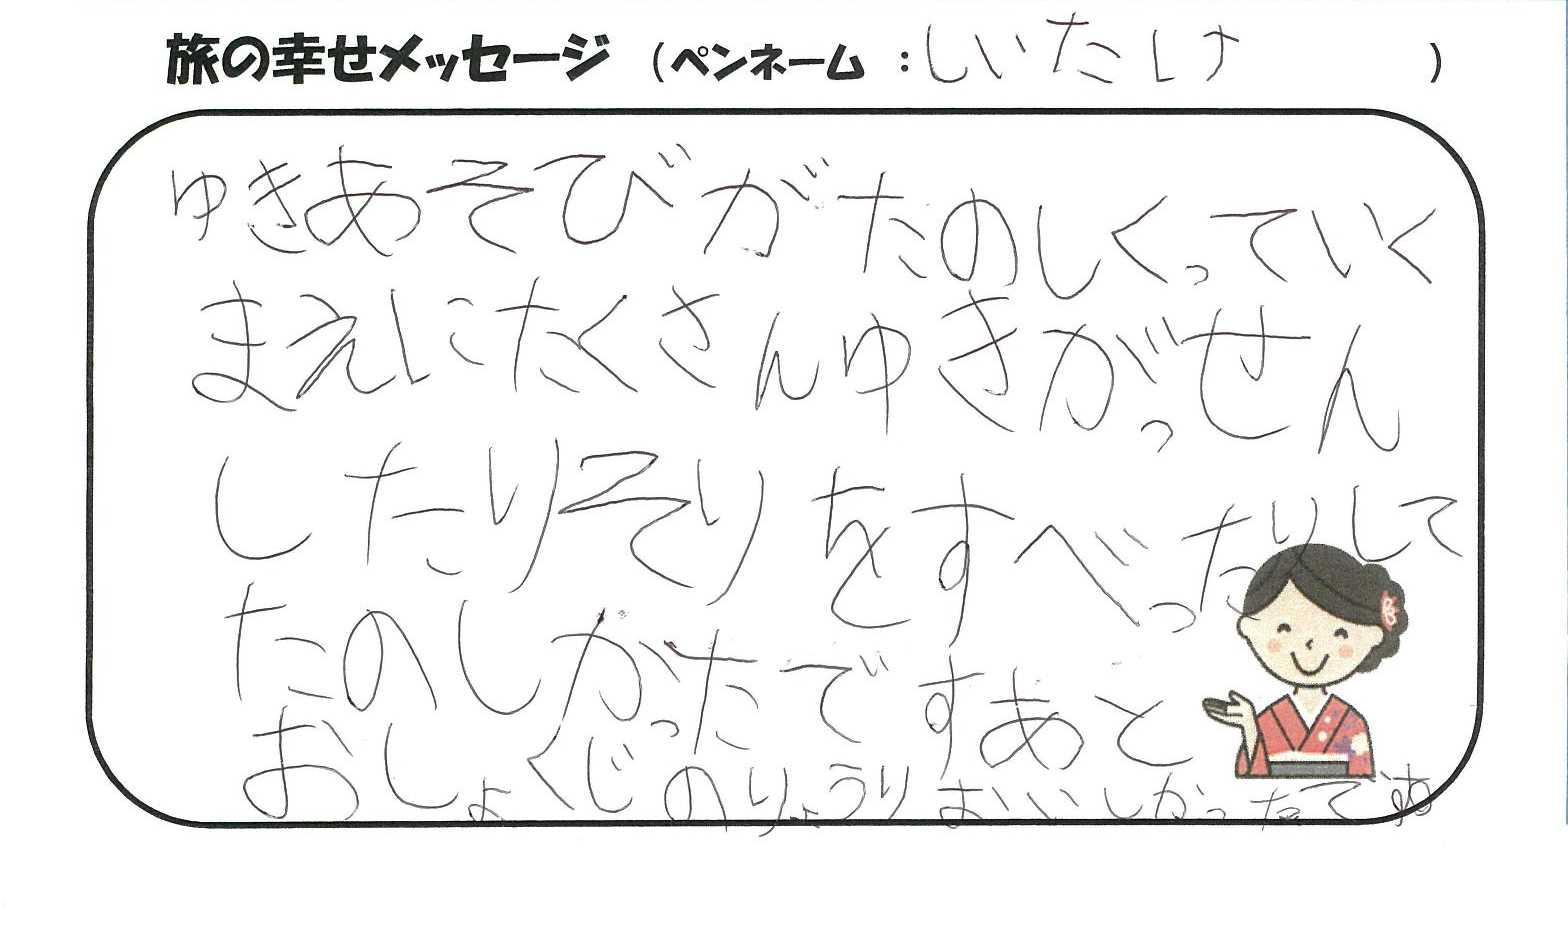 旅の幸せメッセージ (ペンネーム :しいたけ )
ゆきあそびがたのしくっていく
まえにたくさんゆきがっせん
したりそりをすべったりして
たのしかったですあと
おしょくじのりょうりおいしかったです